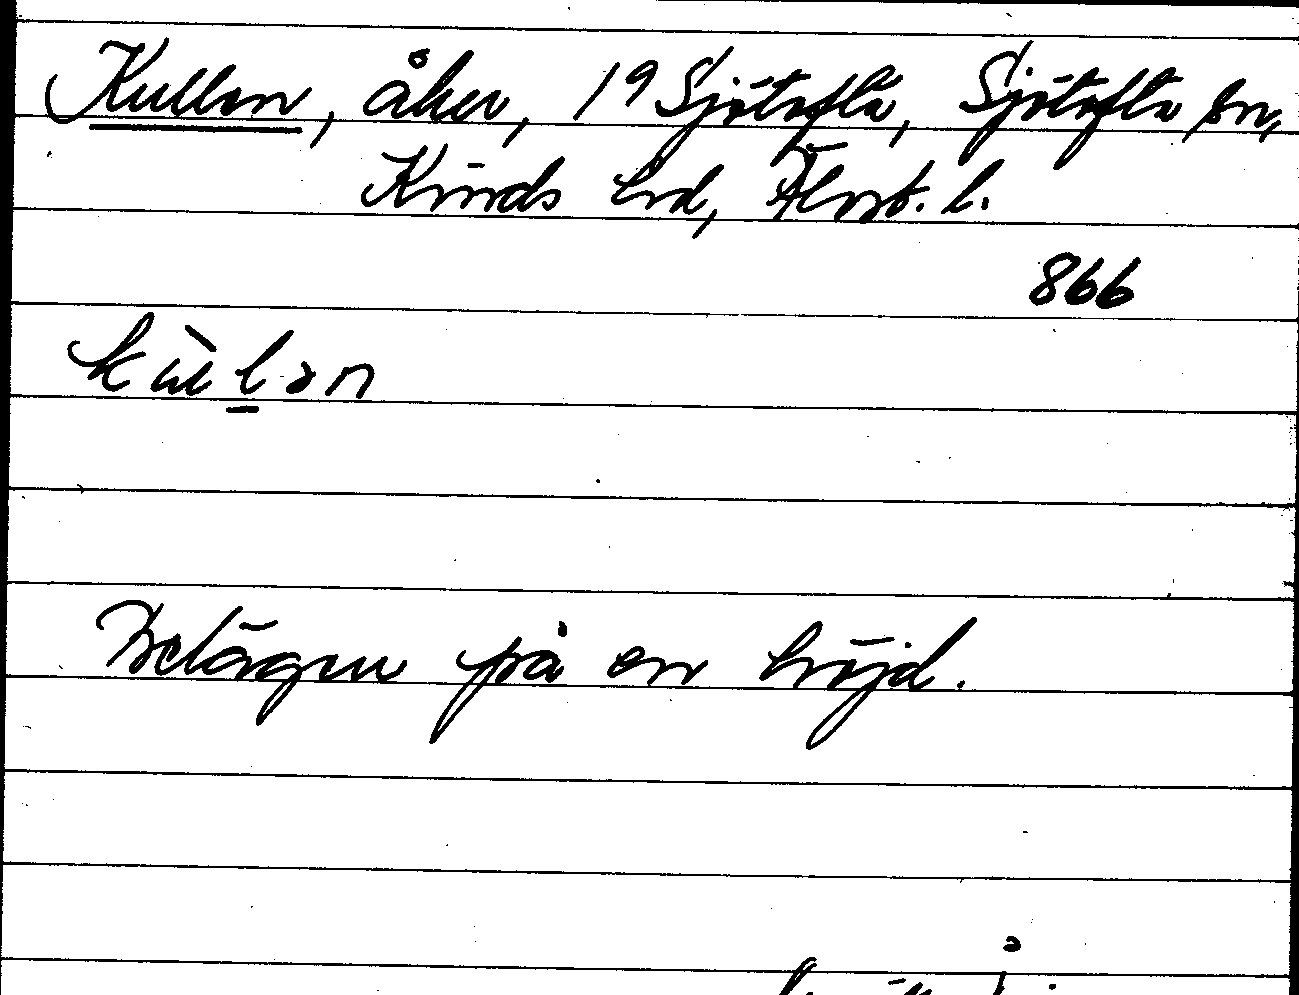 Kullen, åker, 19 Sjötofta, Sjötofta sn,
Kinds hd, Älvsb. l.
866
kùlən
Belägen på en höjd.